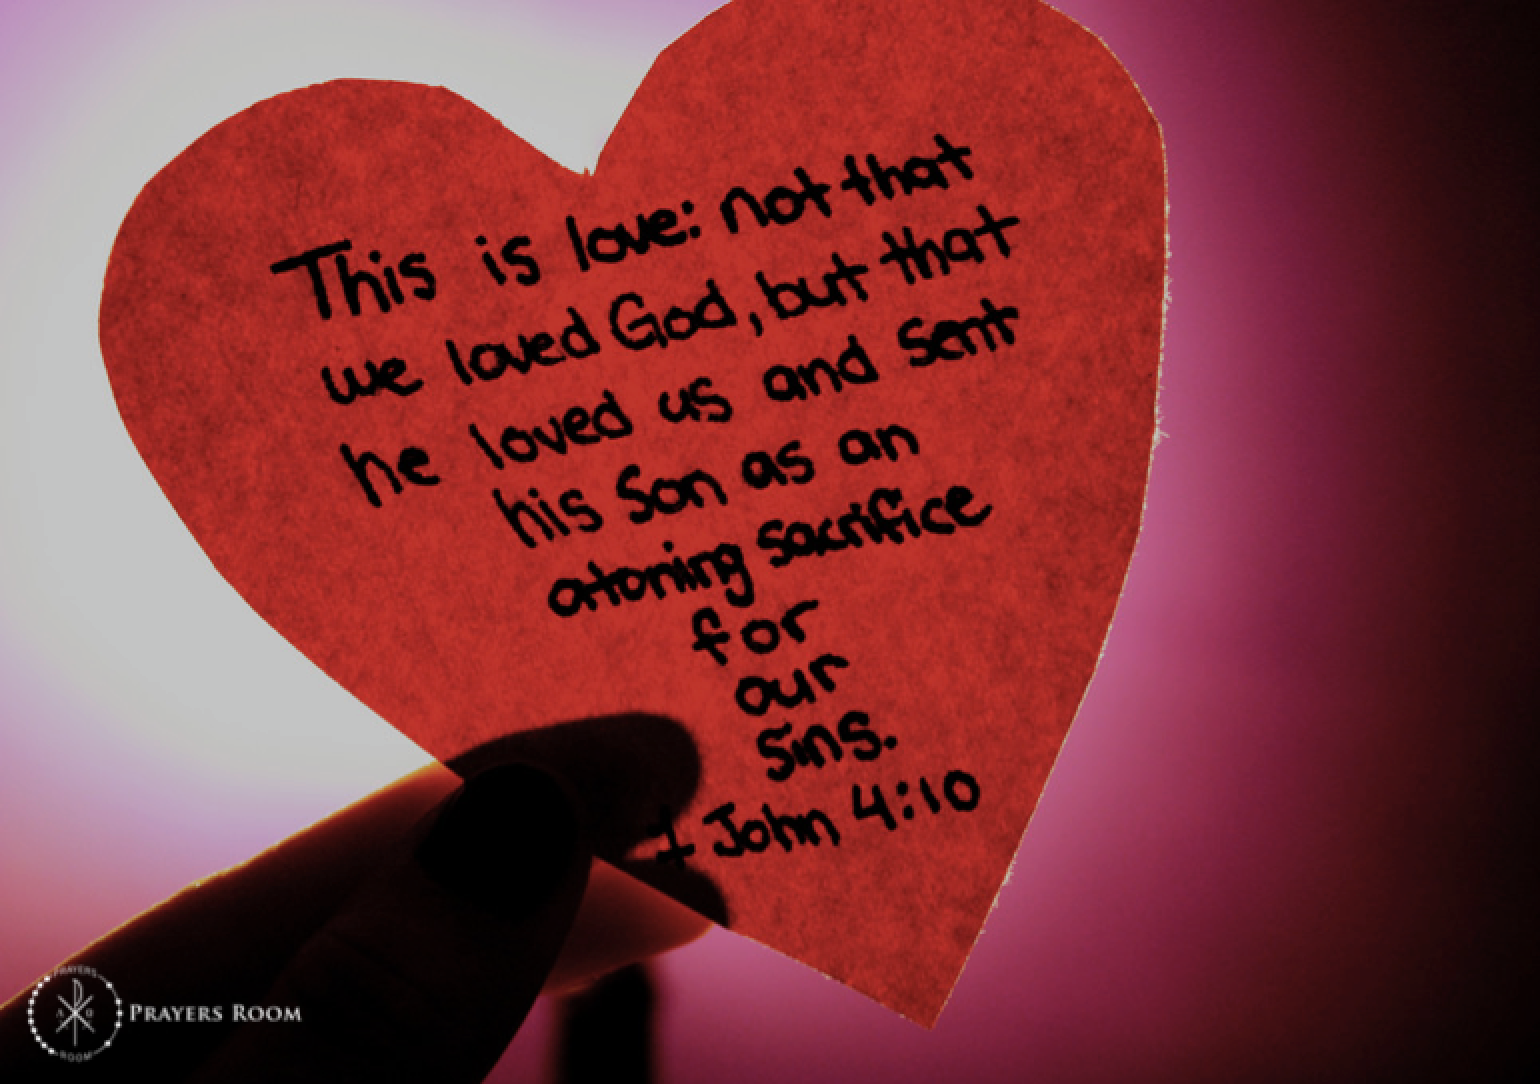 This is love: not that
we loved God, but that
he loved us and sent
his Son as an
atoning sacrifice
for
our
sins.
1 John 4:10
PRAYERS
Α Ω
ROOM
PRAYERS ROOM